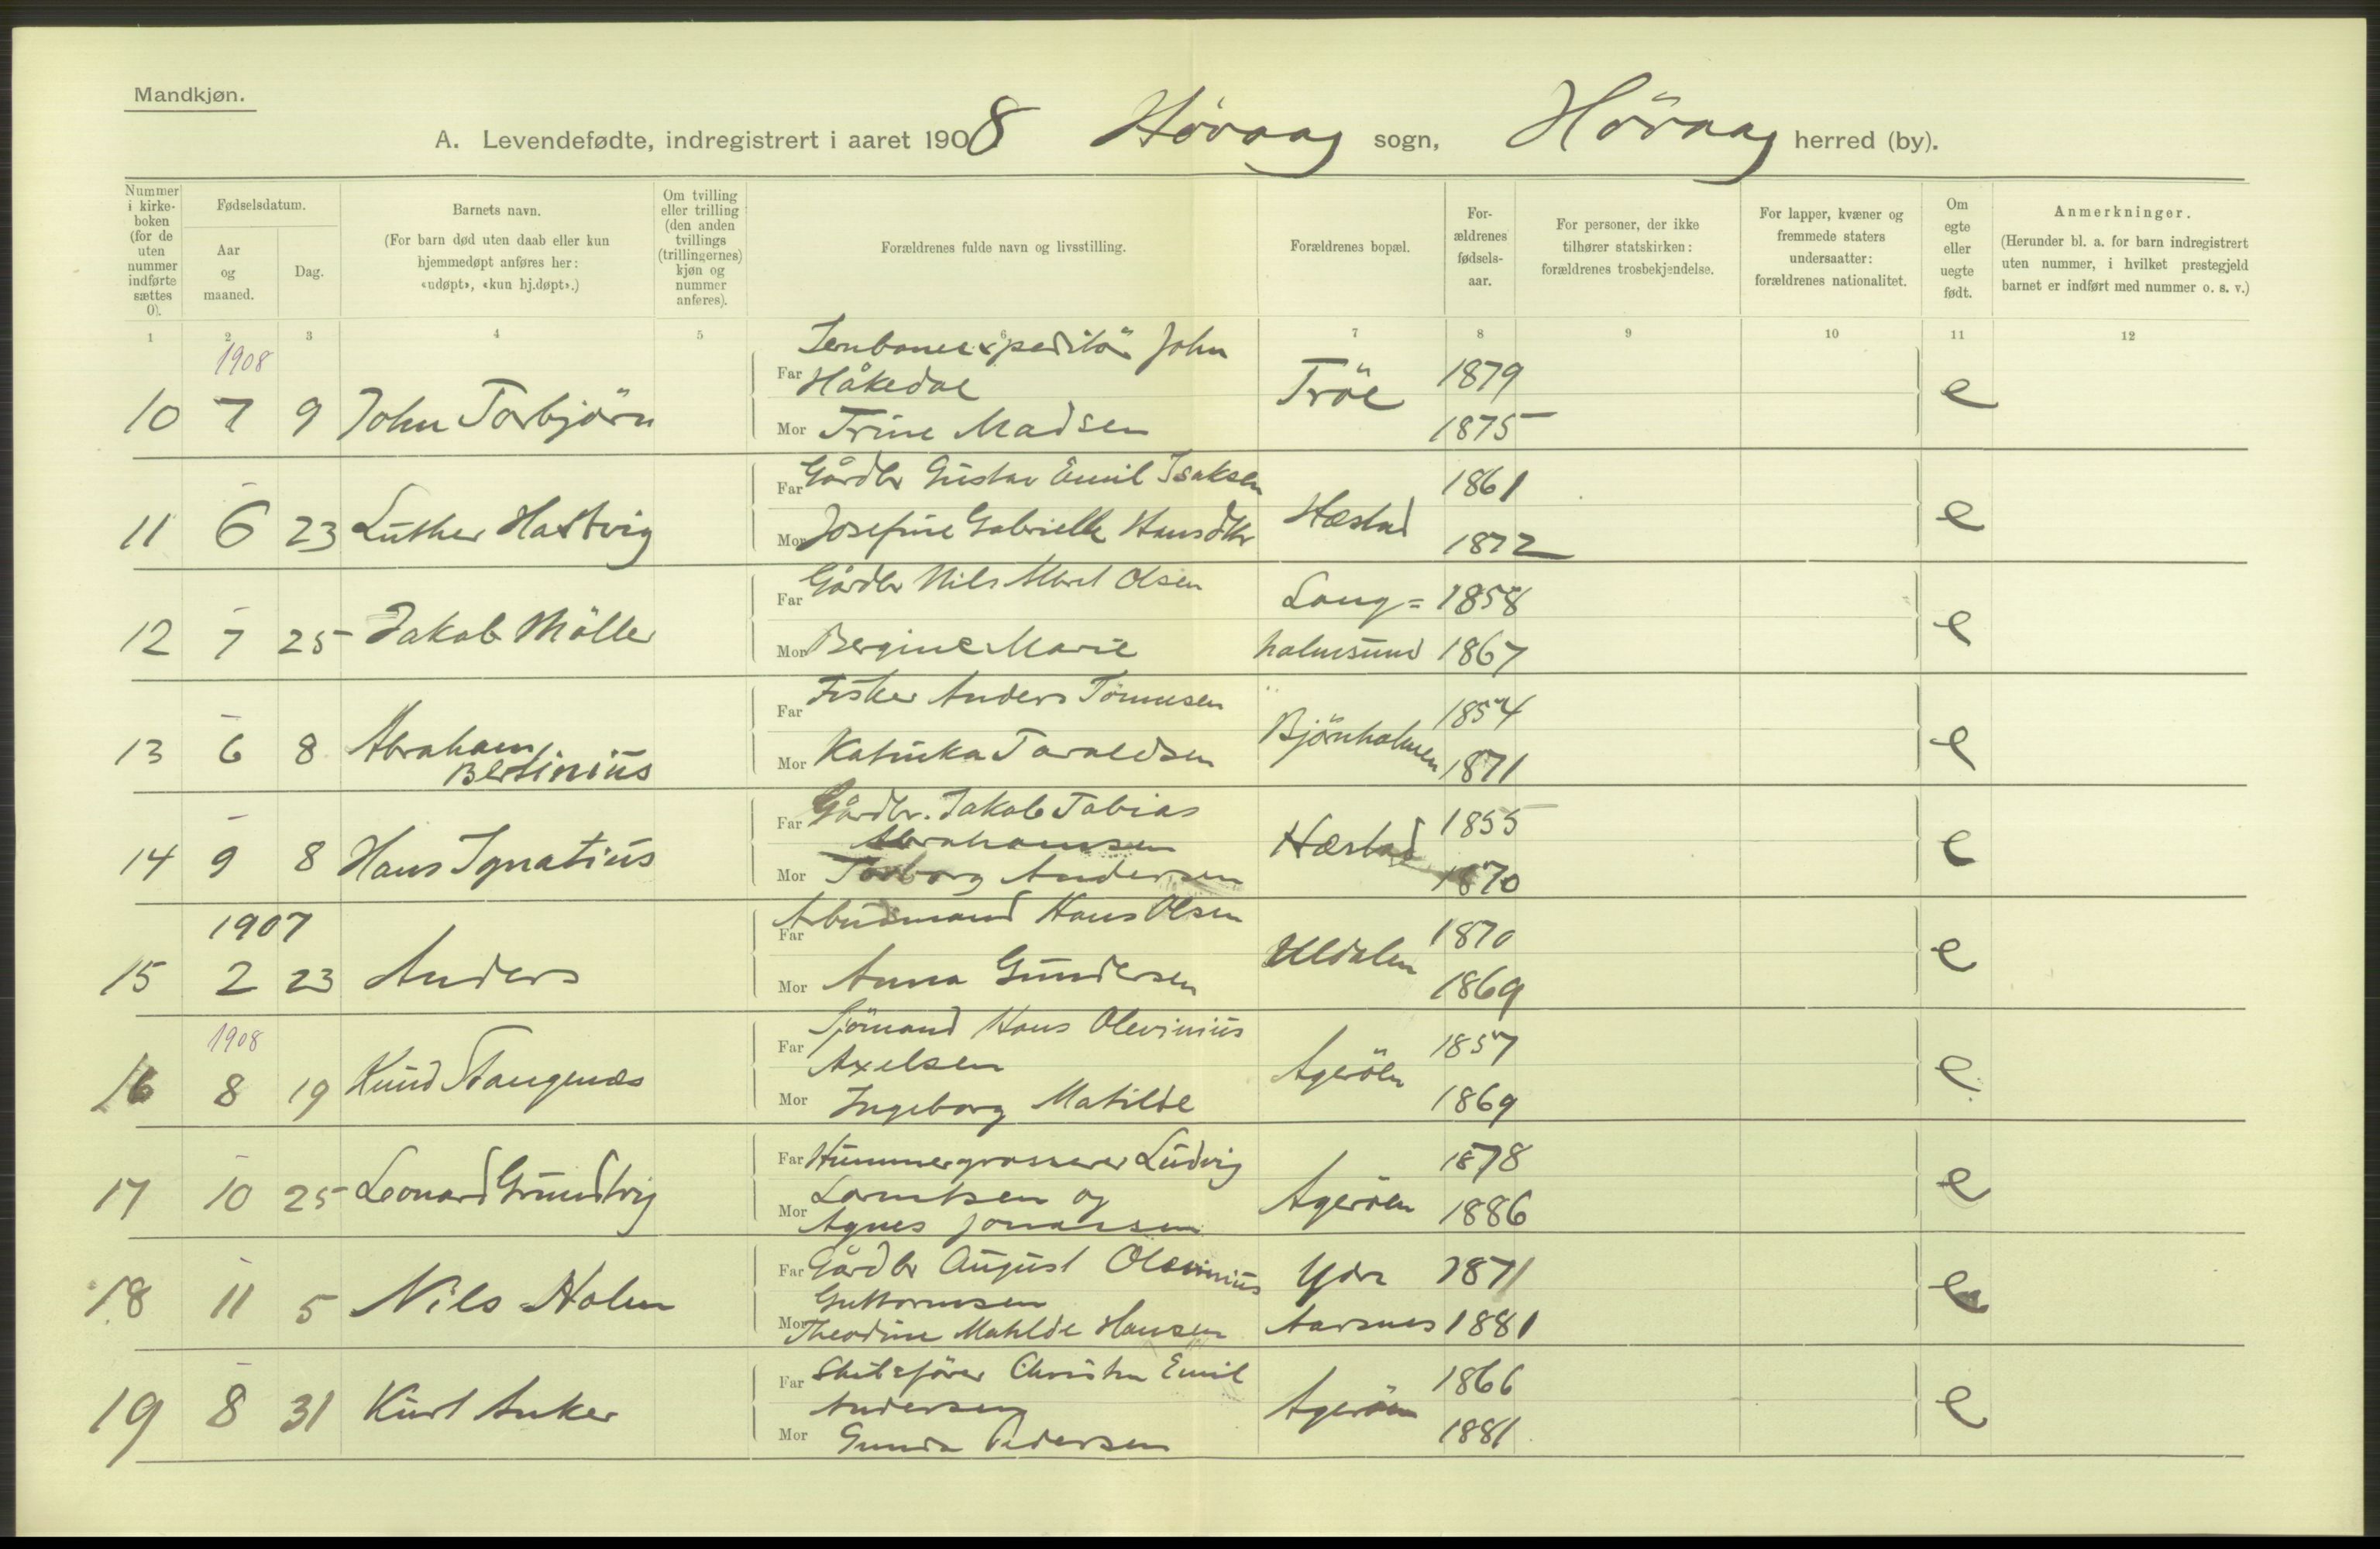 Mandkjøn.
A. Levendefødte, indregistrert i aaret 1908 Høvaag sogn, Høvaag herred (by).
Nummer i kirkeboken (for de uten nummer indførte sættes 0).
Fødselsdatum.
Aar og maaned.
Dag.
Barnets navn.
(For barn død uten daab eller kun hjemmedøpt anføres her: «udøpt», «kun hj.døpt».)
Om tvilling eller trilling (den anden tvillings (trillingernes) kjøn og nummer anføres).
Forældrenes fulde navn og livsstilling.
Forældrenes bopæl.
Forældrenes fødselsaar.
For personer, der ikke tilhører statskirken: forældrenes trosbekjendelse.
For lapper, kvæner og fremmede staters undersaatter: forældrenes nationalitet.
Om egte eller uegte født.
Anmerkninger.
(Herunder bl. a. for barn indregistrert uten nummer, i hvilket prestegjeld barnet er indført med nummer o. s. v.)
1 2 3 4 5 6 7 8 9 10 11 12
1908
10 7 9 John Torbjörn
Far Jernbaneexpeditör John Håkedal
Mor Trine Madsen
Tröe 1879 1875 e
11 6 23 Luther Hartvig
Far Gårdbr Gustav Emil Isaksen
Mor Josefine Gabrielle Hansdtr
Hæstad 1861 1872 e
12 7 25 Jakob Möller
Far Gårdbr Nils Olsen
Mor Bergine Marie
Lang=holmsund 1858 1867 e
13 6 8 Abraham Bertinius
Far Fisker Anders Tönnesen
Mor Katinka Taraldsen
Björnholmen 1854 1871 e
14 9 8 Hans Ignatius
Far Gårdbr. Jakob Tobias Abrahamsen
Mor Torborg Andersen
Hæstad 1855 1870 e
1907
15 2 23 Anders
Far Arbeidsmand Hans Olsen
Mor Anna Gundersen
Uldalen 1870 1869 e
1908
16 8 19 Knud Stangenæs
Far Sjömand Hans Olevinius Axelsen
Mor Ingeborg Matilde
Ageröen 1857 1869 e
17 10 25 Leonard Grundtvig
Far Hummergrosserer Ludvig
Mor Lorentsen og Agnes Johansen
Ageröen 1878 1886 e
18 11 5 Nils Holm
Far Gårdbr August Olevinius Guttormsen
Mor Theodine Matilde Hansen
Ydre Aarsnes 1871 1881 e
19 8 31 Kurt Anker
Far Skibsförer Christen Emil Andersen
Mor Gunda Pedersen
Ageröen 1866 1881 e